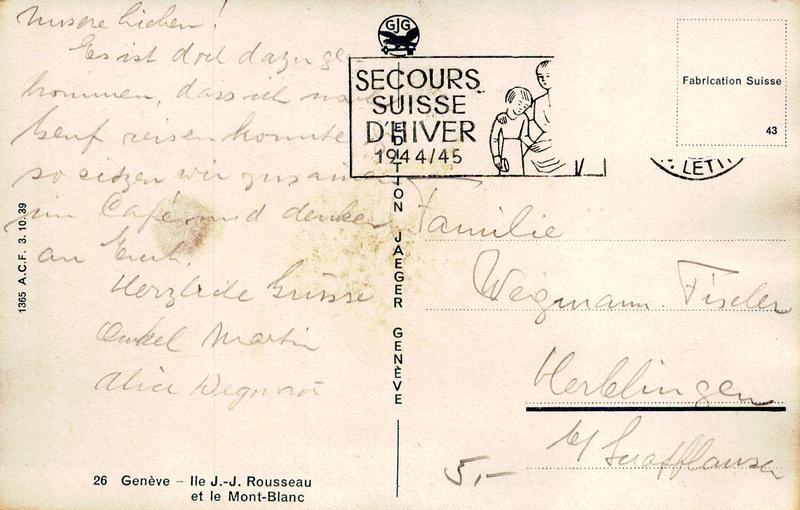 Unsere Lieben!
Es ist doch dazu ge
kommen, dass ich nach
Genf reisen konnte
so sitzen wir zusammen
im Café und denken
an Euch.
Herzliche Grüsse
Onkel Martin
Alice Wegmann
26 Genève – Ile J.-J. Rousseau
et le Mont-Blanc
1365 A.C.F. 3.10.39
GJG
EDITION JAEGER GENÈVE
SECOURS
SUISSE
D'HIVER
1944/45
LETTR
Fabrication Suisse
43
Familie
Wegmann-Fischer
Herblingen
b/ Schaffhausen
5,-